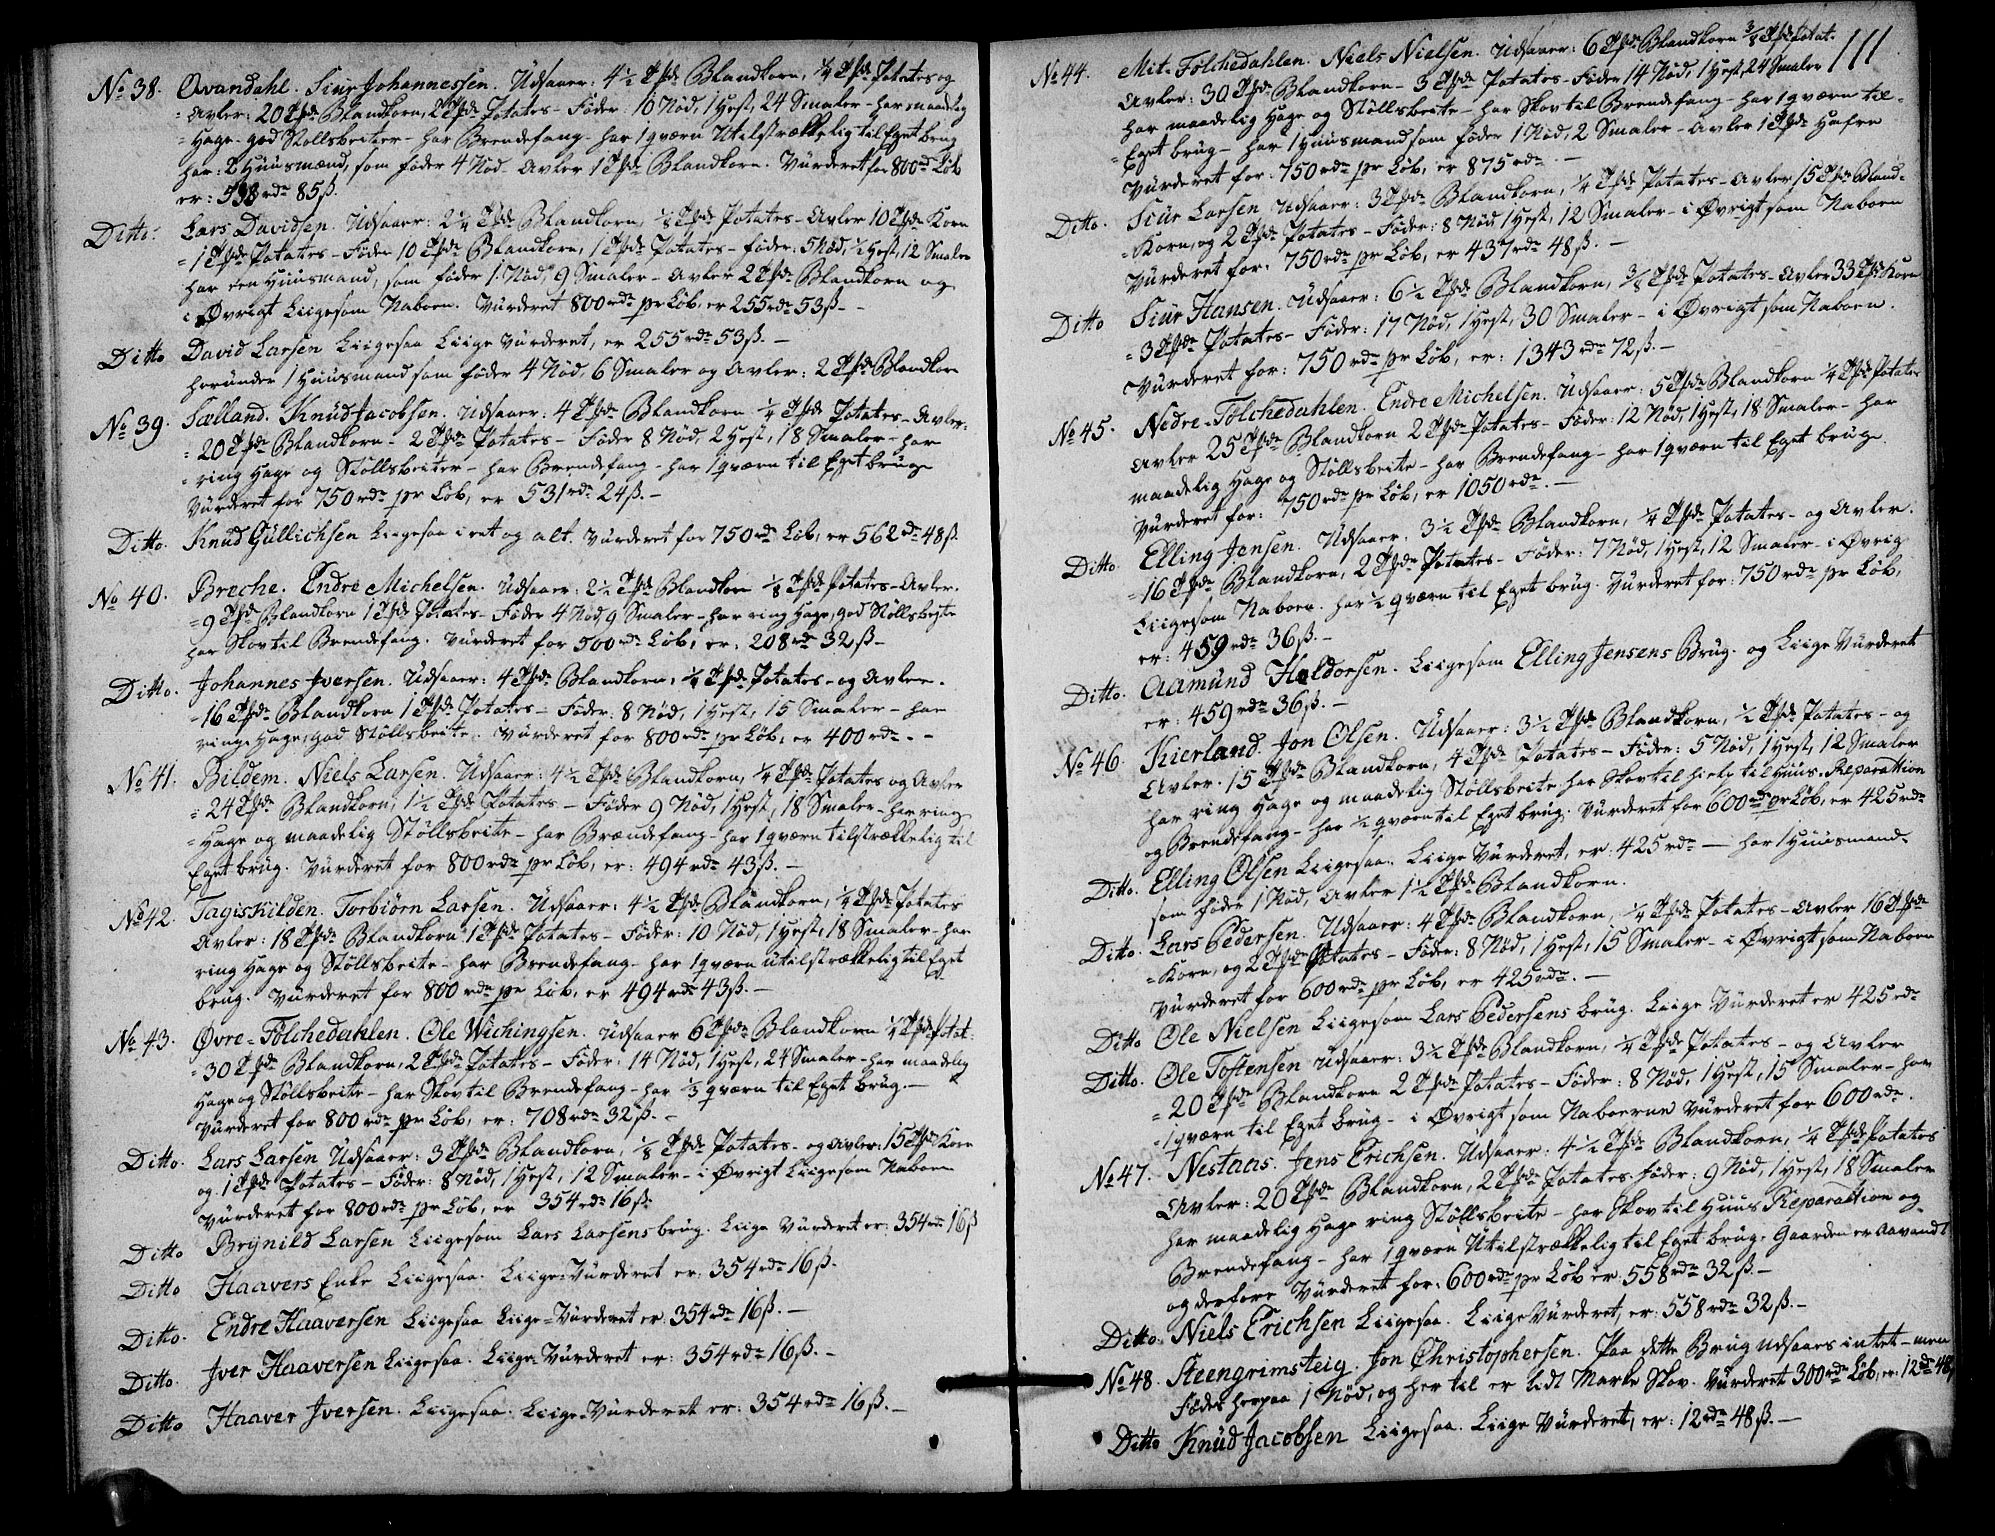 No 38. Qvandahl. Siur Johannessen. Udsaaer: 4½ Tde Blandkorn, ¼ Tde Potates og
Avler: 20 Tde Blandkorn, 2 Tde Potates - Føder 10 Nød, 1 Hest, 24 Smaler - har maadelig
Hage god Støllsbeiter - har Brendefang - har 1 qværn Utilstrækkelig til Eget brug
har: 2 Huusmænd, som føder 4 Nød - Avler 1 Tde Blandkorn. Vurderet for 800 rd Løb
er: 538 rdr 85 ß.
Ditto. Lars Davidsen. Udsaaer: 2¼ Tde Blandkorn, ⅛ Tde Potates - Avler 10 Tde Korn
1 Tde Potates - Føder 10 Tde Blandkorn, 1 Tde Potates - føder: 5 Nød, ½ Hest, 12 Smaler
har een Huusmand, som føder 1 Nød, 9 Smaler - Avler 2 Tde Blandkorn og
i Øvrigt Liigesom Naboen. Vurderet 800 rdr pr Løb, er 255 rdr 53 ß. -
Ditto David Larsen Liigesaa Liige Vurderet, er 255 rdr 53 ß. -
herunder 1 Huusmand som føder 4 Nød, 6 Smaler og Avler: 2 Tde Blandkorn
No 39. Sælland. Knud Jacobsen. Udsaaer: 4 Tde Blandkorn ¼ Tde Potates - Avler:
20 Tde Blandkorn - 2 Tde Potates - Føder 8 Nød, 2 Hest, 18 Smaler - har
ring Hage og Støllsbeiter - har Brendefang - har 1 qværn til Eget bruge
Vurderet for 750 rdr pr Løb, er 531 rdr 24 ß. -
Ditto. Knud Gullichsen Liigesaa i eet og alt. Vurderet for 750 rdr Løb, er 562 rdr 48 ß.
No 40. Breche. Endre Michelsen. Udsaaer: 2½ Tde Blandkorn ⅛ Tde Potates - Avler.
9 Tde Blandkorn 1 Tde Potates - Føder 4 Nød, 9 Smaler - har ring Hage, god Støllsbeite
har Skov til Brendefang. Vurderet for 500 rdr Løb, er: 208 rdr 32 ß -
Ditto. Johannes Iversen. Udsaaer: 4 Tde Blandkorn, ¼ Tde Potates - og Avler.
16 Tde Blandkorn 1 Tde Potates - Føder: 8 Nød, 1 Hest, 15 Smaler - har
ringe Hage, god Støllsbeite. Vurderet for 800 rdr pr Løb, er 400 rdr. -
No 41. Bildem. Niels Larsen. Udsaaer: 4½ Tde Blandkorn, ¼ Tde Potates og Avler
24 Tde Blandkorn, 1½ Tde Potates - Føder 9 Nød, 1 Hest, 18 Smaler - har ring
Hage og maadelig Støllsbeite - har Brændefang - har 1 qværn tilstrækkelig til
Eget brug. Vurderet for 800 rdr pr Løb, er: 494 rdr 43 ß. -
No 42. Tagiskilden. Torbiørn Larsen. Udsaaer: 4½ Tde Blandkorn, ¼ Tde Potates
Avler: 18 Tde Blandkorn 1 Tde Potates - Føder: 10 Nød, 1 Hest, 18 Smaler - har
ring Hage og Støllsbeite - har Brendefang - har 1 qværn utilstrækkelig til Eget
brug. Vurderet for 800 rdr pr Løb, er 494 rdr 43 ß. -
No 43. Øvre-Følchedahlen. Ole Wichingsen. Udsaaer 6 Tde Blandkorn ¼ Tde Potat.
30 Tde Blandkorn, 2 Tde Potates - Føder: 14 Nød, 1 Hest, 24 Smaler - har maadelig
Hage og Støllsbeite - har Skov til Brendefang - har ⅓ qværn til Eget brug. -
Vurderet for 800 rdr pr Løb, er: 708 rdr 32 ß. -
Ditto. Lars Larsen Udsaaer: 3 Tde Blandkorn, ⅛ Tde Potates - og Avler: 15 Tde Korn
og 1 Tde Potates - Føder: 8 Nød, 1 Hest, 12 Smaler - i Øvrigt Liigesom Naboen
Vurderet for 800 rdr pr Løb, er 354 rdr 16 ß.
Ditto Brynild Larsen Liigesom Lars Larsens brug. Liige Vurderet er: 354 rdr 16 ß
Ditto Haavers Enke Liigesaa. Liige-Vurderet er: 354 rdr 16 ß.
Ditto. Endre Haaversen Liigesaa Liige-Vurderet er: 354 rdr 16 ß. -
Ditto. Iver Haaversen Liigesaa. Liige-Vurderet er: 354 rdr 16 ß. -
Ditto Haaver Iversen. Liigesaa. Liige-Vurderet er: 354 rdr 16 ß. -
111
No 44. Mit-Følchedahlen. Niels Nielsen. Udsaaer: 6 Tde Blandkorn ⅜ Tde Potat.
Avler: 30 Tde Blandkorn - 3 Tde Potates - Føder 14 Nød, 1 Hest, 24 Smaler
har maadelig Hage og Støllsbeite - har Skov til Brendefang - har 1 qværn til
Eget brug - har 1 Huusmand som føder 1 Nød, 2 Smaler - Avler 1 Tde Hafre
Vurderet for: 750 rdr pr Løb, er 875 rdr. -
Ditto. Siur Larsen Udsaaer: 3 Tde Blandkorn, ¼ Tde Potates - Avler 15 Tde Bland-
Korn, og 2 Tde Potates - Føder: 8 Nød 1 Hest, 12 Smaler - i Øvrigt som Naboen
Vurderet for: 750 rdr pr Løb, er 437 rdr 48 ß. -
Ditto Siur Hansen. Udsaaer: 6½ Tde Blandkorn, ⅜ Tde Potates - Avler 33 Tde Korn
3 Tde Potates - Føder: 17 Nød, 1 Hest, 30 Smaler - i Øvrigt som Naboen.
Vurderet for: 750 rdr pr Løb, er: 1343 rdr 72 ß. -
No 45. Nedre-Følchedahlen. Endre Michelsen. Udsaaer: 5 Tde Blandkorn ¼ Tde Potates
Avler 25 Tde Blandkorn 2 Tde Potates - Føder: 12 Nød, 1 Hest, 18 Smaler - har
maadelig Hage og Støllsbeite - har Brendefang - har 1 qværn til Eget bruge
Vurderet for: 750 rdr pr Løb, er 1050 rdr. -
Ditto. Elling Jensen. Udsaaer. 3½ Tde Blandkorn, ¼ Tde Potates - og Avler.
16 Tde Blandkorn, 2 Tde Potates - Føder: 7 Nød, 1 Hest, 12 Smaler - i Øvrig
Liigesom Naboen. har ½ qværn til Eget brug. Vurderet for: 750 rdr pr Løb,
er: 459 rdr 36 ß. -
Ditto. Aamund Haldorsen. Liigesom Elling Jensens Brug - og Liige Vurderet
er: 459 rdr 36 ß. -
No 46. Kierland. Jon Olsen. Udsaaer: 3½ Tde Blandkorn, ½ Tde Potates - og
Avler: 15 Tde Blandkorn, 4 Tde Potates - Føder: 5 Nød, 1 Hest, 12 Smaler
har ring Hage og maadelig Støllsbeite har Skov til hielp til Huus-Reparattion
og Brendefang - har ½ qværn til Eget brug. Vurderet for 600 rdr pr Løb, er 425 rdr
Ditto. Elling Olsen Liigesaa. Liige Vurderet, er: 425 rdr - har 1 Huusmand
som føder 1 Nød, Avler 1½ Tde Blandkorn.
Ditto. Lars Pedersen. Udsaaer: 4 Tde Blandkorn, ¼ Tde Potates - Avler 16 Tde
Korn, og 2 Tde Potates - Føder: 8 Nød, 1 Hest, 15 Smaler - i Øvrigt som Naboen
Vurderet for 600 rdr pr Løb, er 425 rdr. -
Ditto Ole Nielsen Liigesom Lars Pedersens brug. Liige Vurderet er 425 rdr
Ditto. Ole Tostensen Udsaaer: 3½ Tde Blandkorn, ¼ Tde Potates - og Avler
20 Tde Blandkorn 2 Tde Potates - Føder: 8 Nød, 1 Hest, 15 Smaler - har
1 qværn til Eget brug - i Øvrigt som Naboerne Vurderet for 600 rdr.
No 47. Nestaas. Jens Erichsen. Udsaaer: 4½ Tde Blandkorn, ¼ Tde Potates
Avler: 20 Tde Blandkorn, 2 Tde Potates. føder: 9 Nød, 1 Hest, 18 Smaler
har maadelig Hage ring Støllsbeite - har Skov til Huus Reparattion og
Brendefang - har 1 qværn Utilstrækkelig til Eget brug. Gaarden er Aavandt
og derfore Vurderet for: 600 rdr pr Løb er: 558 rdr 32 ß. -
Ditto. Niels Erichsen Liigesaa. Liige Vurderet, er: 558 rdr 32 ß. -
No 48. Steengrimsteig. Jon Christophersen. Paa dette Brug udsaaes intet - men
Føder herpaa 1 Nød, og her til er lidt Marke Skov. Vurderet 300 rdr Løb, er: 12 rdr 48 ß
Ditto Knud Jacobsen Liigesaa. Liige Vurderet, er: 12 rdr 48 ß. -